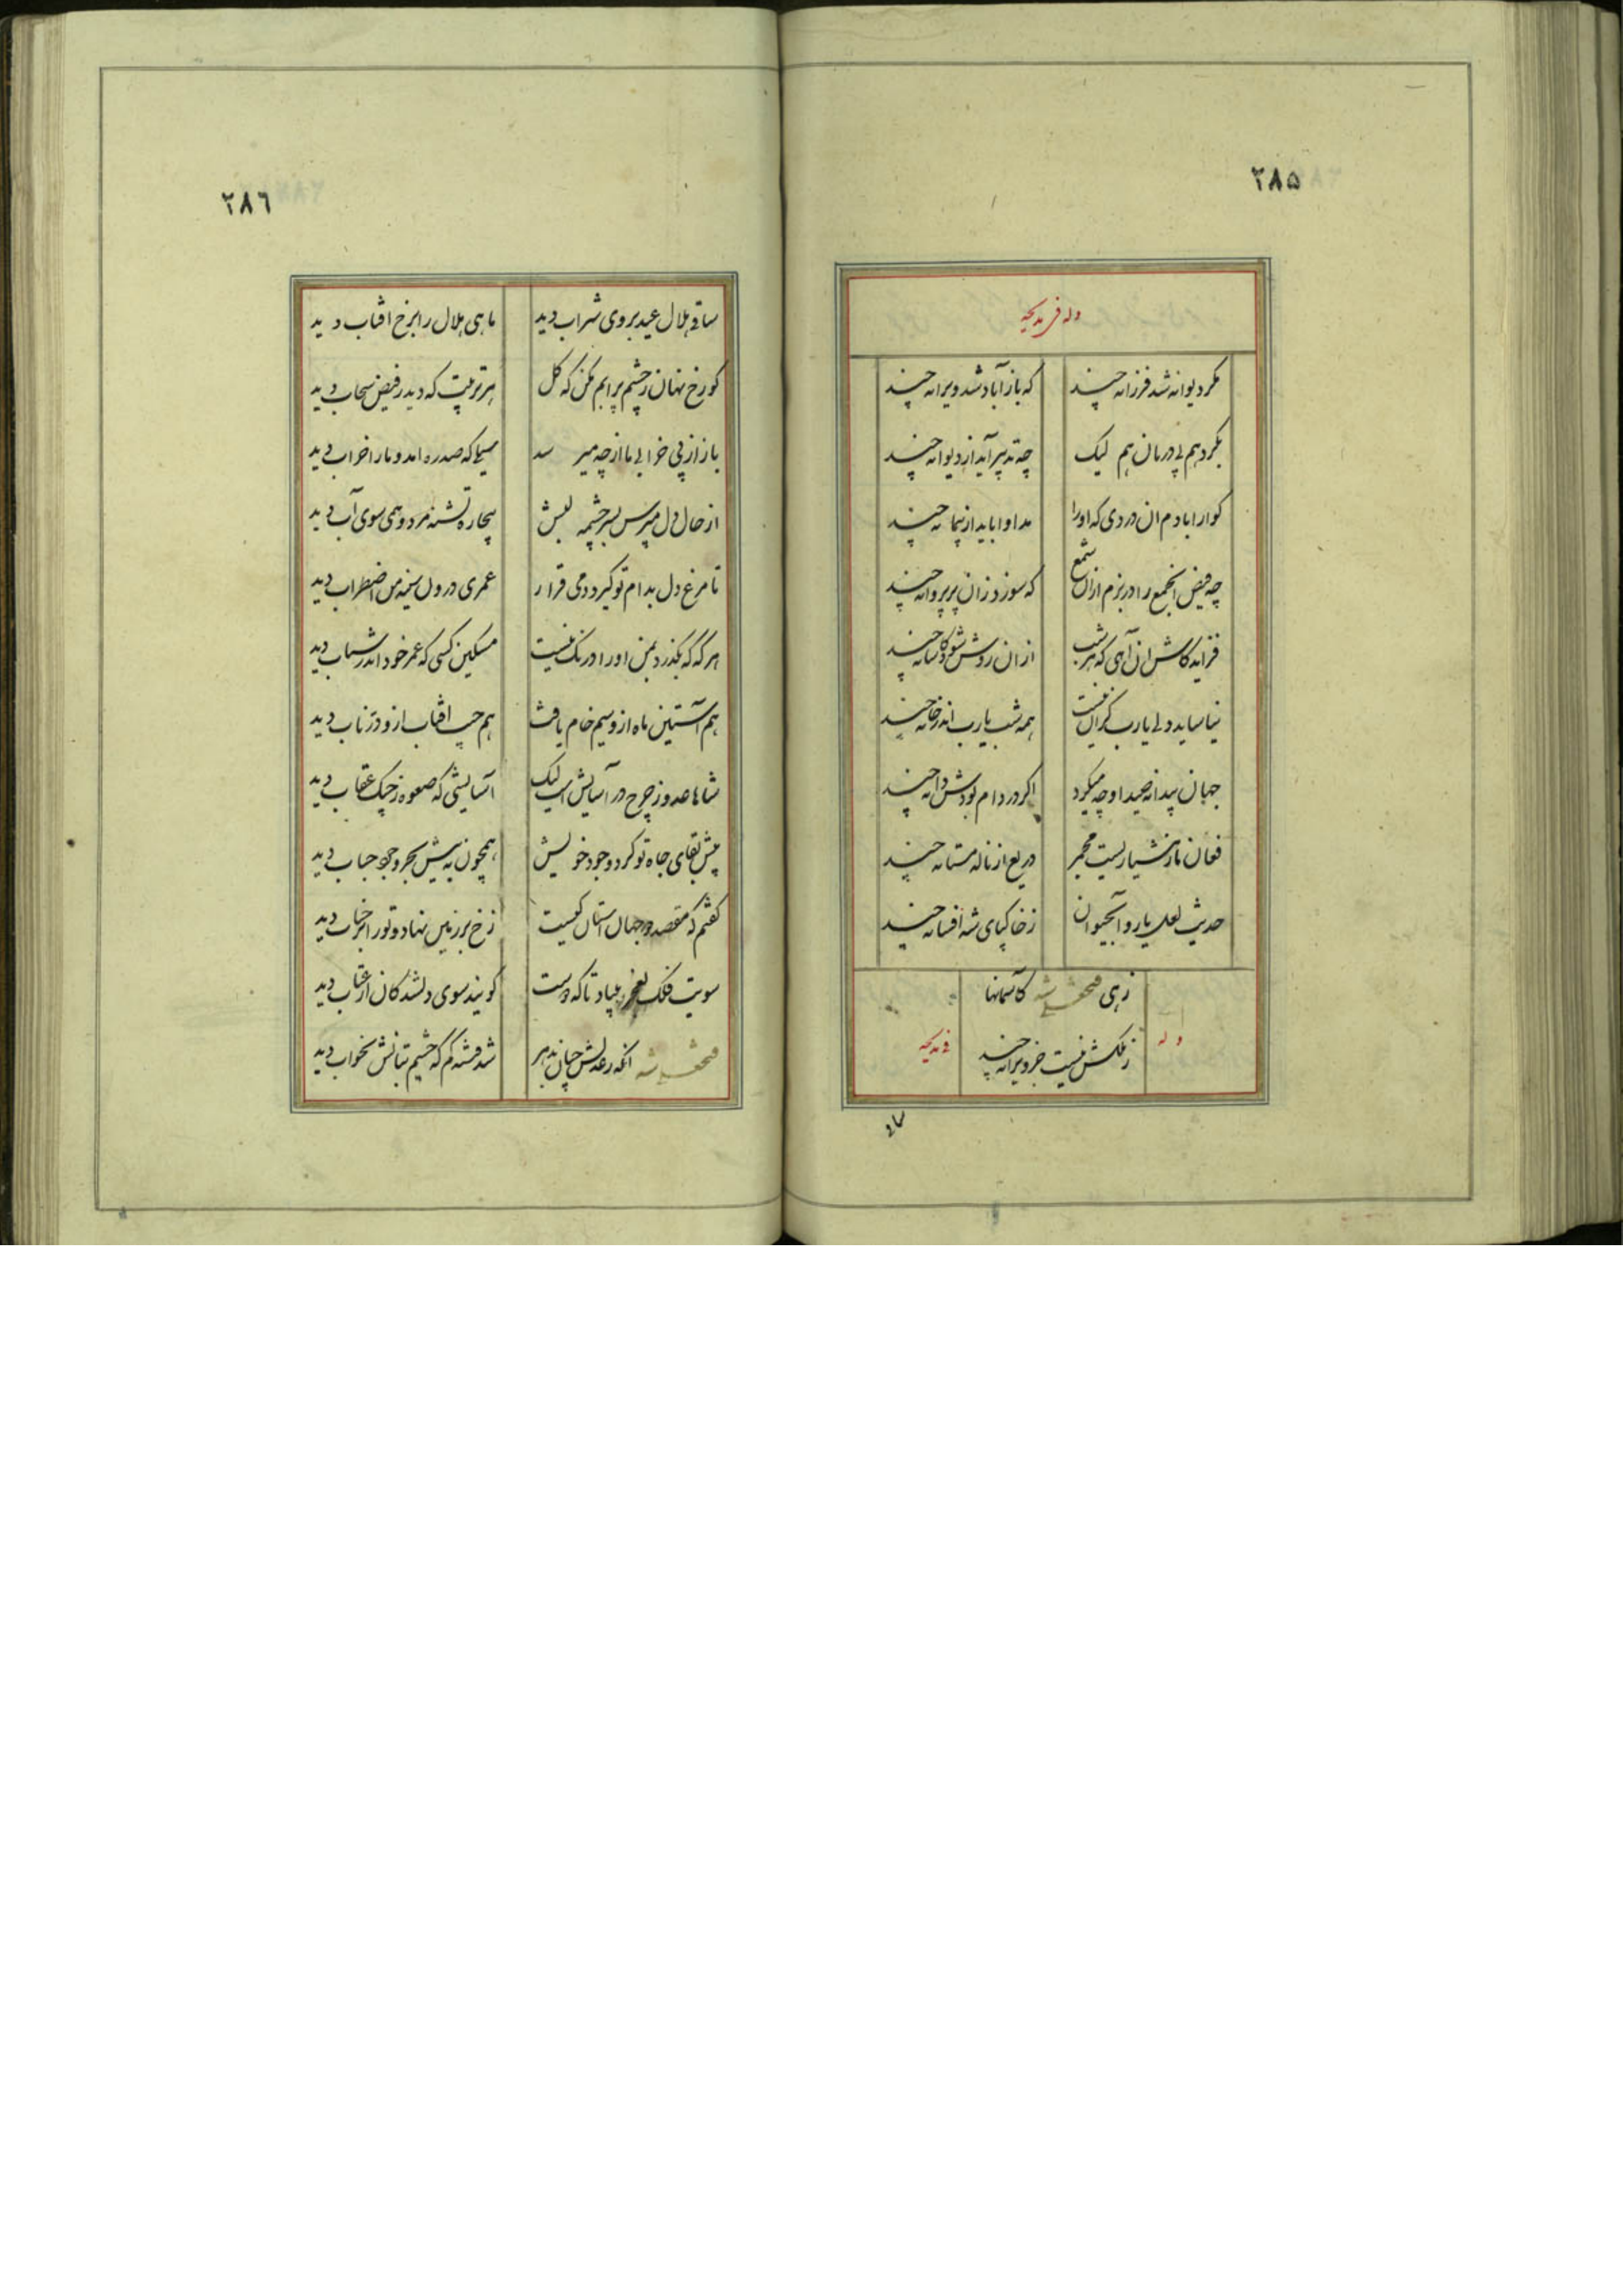 ۲۸۵
وله فی مدیحه
مکر دیوانه شد فرزانه چند که باز آباد شد ویرانه چند
بکردهم پی درمان هم لیک چه تدبیر آید از دیوانه چند
کوارا بادم ان دردی که اورا مداوا باید از پیمانه چند
چه فیض انجمع را در بزم ازان شمع که سوزد زان پر پروانه چند
فزاید کاش ان آهی که هر شب ازان روشن شود کاشانه چند
نیاساید دلی یارب کزان نیست همه شب یارب اندر خانه چند
جهان بیدانه صید او چه میکرد اکر در دام بودش دانه چند
فغان ناز هشیاریست مجمر دریغ از ناله مستانه چند
حدیث لعل یار و آبحیوان ز خاکپای شه افسانه چند
زهی فتحعلی شه کاسمانها
ز ملکش نیست جز ویرانه چند
وله
فی مدیحه
ساقی
۲۸٦
ساقی هلال عید بروی شراب دید ماهی هلال را برخ افتاب دید
کو رخ نهان ز چشم پر ابم مکن که کل هر تربیت که دید ز فیض سحاب دید
باز از پی خرابی ما از چه میرسد سیلی که صد ره امد و ما را خراب دید
از حال دل مپرس بسر چشمه لبش بیچاره تشنه مرد و همی سوی آب دید
تا مرغ دل بدام تو کیرد دمی قرار عمری درون سینه من اضطراب دید
هر که که بکذرد بمن او را درنک نیست مسکین کسی که عمر خود اندر شتاب دید
هم آستین ماه ازو سیم خام یافت هم جیب افتاب ازو زر ناب دید
شاها عدو ز چرخ در آسایش است لیک آسایشی که صعوه ز چنک عقاب دید
پیش بقای جاه تو کردد وجود خویش همچون به پیش بحر وجود حباب دید
کفتم که مقصد دو جهان استان کیست رخ بر زمین نهاد و تو را بر جناب دید
سویت فلک بعجز بیاد تا که دست کویند سوی دلشدکان از عتاب دید
فتحعلی شه انکه ز عدلش جهان بدهر شد فتنه کم که چشم بتانش بخواب دید